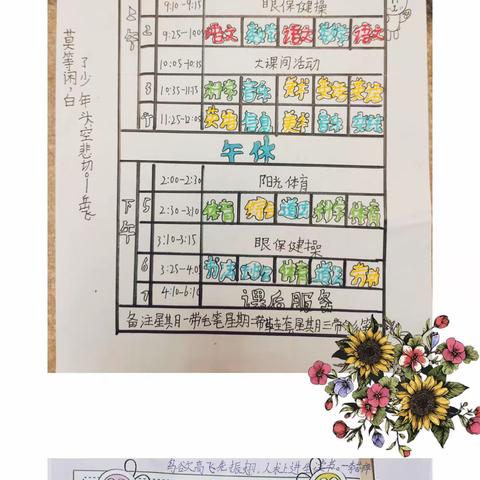 上午
9:10-9:15 眼保健操
2 9:25-10:0 语文 数学 语文 数学 语文
10:05-10:35 大课间活动
3 10:35-11:15 科学 音乐 美术 生活 英语
11:25-12:0 英语 信息 美术 音乐
午休
下午
2:00-2:30 阳光体育
5 2:30-3:10 体育 道法 科学 体育
3:10-3:15 眼保健操
6 3:25-4:0 体育 道法 劳动
7 4:10-6:10 课后服务
备注星期一带毛笔星期二带
莫等闲,白
了少年头空悲切。——岳飞
鸟欲高飞先振翅,人求上进先读书。——李苦禅